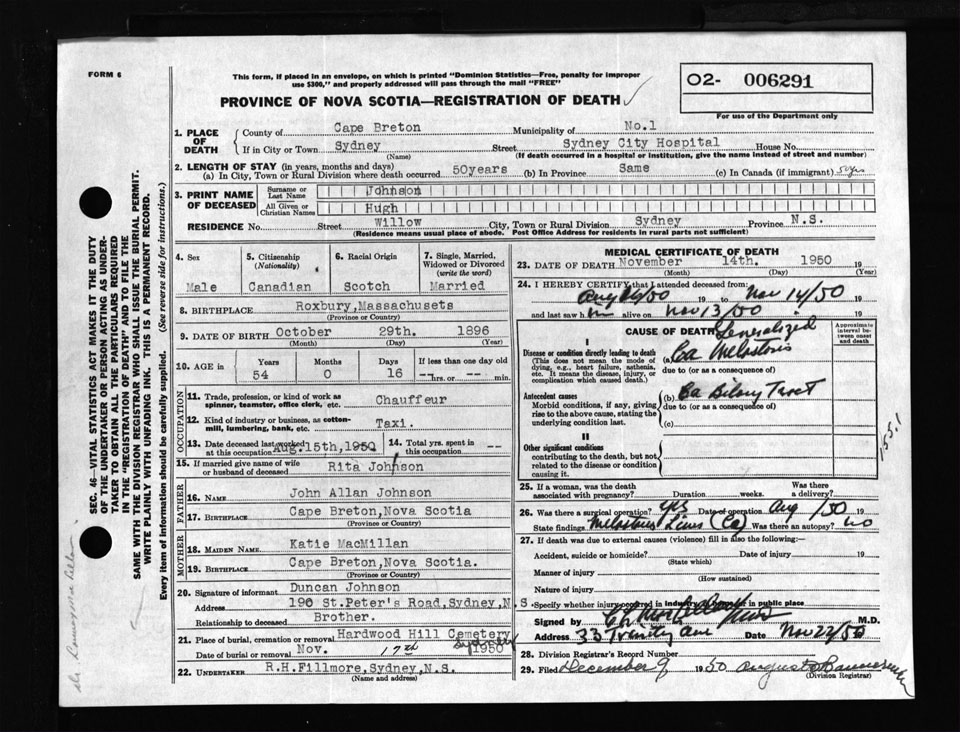 FORM 6
This form, if placed in an envelope, on which is printed "Dominion Statistics—Free, penalty for improper
use $300," and properly addressed will pass through the mail "FREE"
PROVINCE OF NOVA SCOTIA—REGISTRATION OF DEATH
O2- 006291
For use of the Department only
1. PLACE OF DEATH
County of Cape Breton Municipality of No.1
If in City or Town Sydney Street Sydney City Hospital House No.
(Name) (If death occurred in a hospital or institution, give the name instead of street and number)
2. LENGTH OF STAY (in years, months and days)
(a) In City, Town or Rural Division where death occurred 50years (b) In Province Same (c) In Canada (if immigrant) 50yrs
3. PRINT NAME OF DECEASED
Surname or Last Name Johnson
All Given or Christian Names Hugh
RESIDENCE No. Street Willow City, Town or Rural Division Sydney Province N.S.
(Residence means usual place of abode. Post Office Address for residents in rural parts not sufficient)
4. Sex
Male
5. Citizenship (Nationality)
Canadian
6. Racial Origin
Scotch
7. Single, Married, Widowed or Divorced (write the word)
Married
8. BIRTHPLACE Roxbury,Massachusets
(Province or Country)
9. DATE OF BIRTH October 29th. 1896
(Month) (Day) (Year)
10. AGE in
Years 54
Months 0
Days 16
If less than one day old
-- hrs. or -- min.
OCCUPATION
11. Trade, profession, or kind of work as
spinner, teamster, office clerk, etc. Chauffeur
12. Kind of industry or business, as cotton-
mill, lumbering, bank, etc. Taxi.
13. Date deceased last worked
at this occupation Aug.15th,1950
14. Total yrs. spent in
this occupation --
15. If married give name of wife
or husband of deceased Rita Johnson
FATHER
16. NAME John Allan Johnson
17. BIRTHPLACE Cape Breton,Nova Scotia
(Province or Country)
MOTHER
18. MAIDEN NAME Katie MacMillan
19. BIRTHPLACE Cape Breton,Nova Scotia.
(Province or Country)
20. Signature of informant Duncan Johnson
Address 190 St.Peter's Road,Sydney,N.S.
Relationship to deceased Brother.
21. Place of burial, cremation or removal Hardwood Hill Cemetery
Sydney
Date of burial or removal Nov. 17th 1950
22. UNDERTAKER R.H.Fillmore,Sydney,N.S.
(Name and address)
MEDICAL CERTIFICATE OF DEATH
23. DATE OF DEATH November 14th. 1950 19
(Month) (Day) (Year)
24. I HEREBY CERTIFY that I attended deceased from:
Aug /50 19 to Nov 14/50 19
and last saw him alive on Nov 13/50 19
CAUSE OF DEATH
Approximate interval between onset and death
I
Disease or condition directly leading to death
(This does not mean the mode of
dying, e.g., heart failure, asthenia,
etc. It means the disease, injury, or
complication which caused death.)
Generalized
(a) Ca Metastasis
due to (or as a consequence of)
Antecedent causes
Morbid conditions, if any, giving
rise to the above cause, stating the
underlying condition last.
(b) Ca Bilary Tract
due to (or as a consequence of)
(c)
II
Other significant conditions
contributing to the death, but not
related to the disease or condition
causing it.
155.1
25. If a woman, was the death
associated with pregnancy? Duration weeks. Was there
a delivery?
26. Was there a surgical operation? yes Date of operation Aug /50 19
State findings Liver (Ca) Was there an autopsy? no
27. If death was due to external causes (violence) fill in also the following:—
Accident, suicide or homicide? Date of injury 19
(State which)
Manner of injury
(How sustained)
Nature of injury
Specify whether injury occurred in industry, home, or in public place
Signed by M.D.
Address 33 Trinity Ave Date Nov 22/50
28. Division Registrar's Record Number
29. Filed December 9 1950
(Division Registrar)
SEC. 46—VITAL STATISTICS ACT MAKES IT THE DUTY
OF THE UNDERTAKER OR PERSON ACTING AS UNDER-
TAKER TO OBTAIN ALL THE PARTICULARS REQUIRED
IN THE "REGISTRATION OF DEATH" AND TO FILE THE
SAME WITH THE DIVISION REGISTRAR WHO SHALL ISSUE THE BURIAL PERMIT.
WRITE PLAINLY WITH UNFADING INK. THIS IS A PERMANENT RECORD.
Every item of information should be carefully supplied. (See reverse side for instructions.)